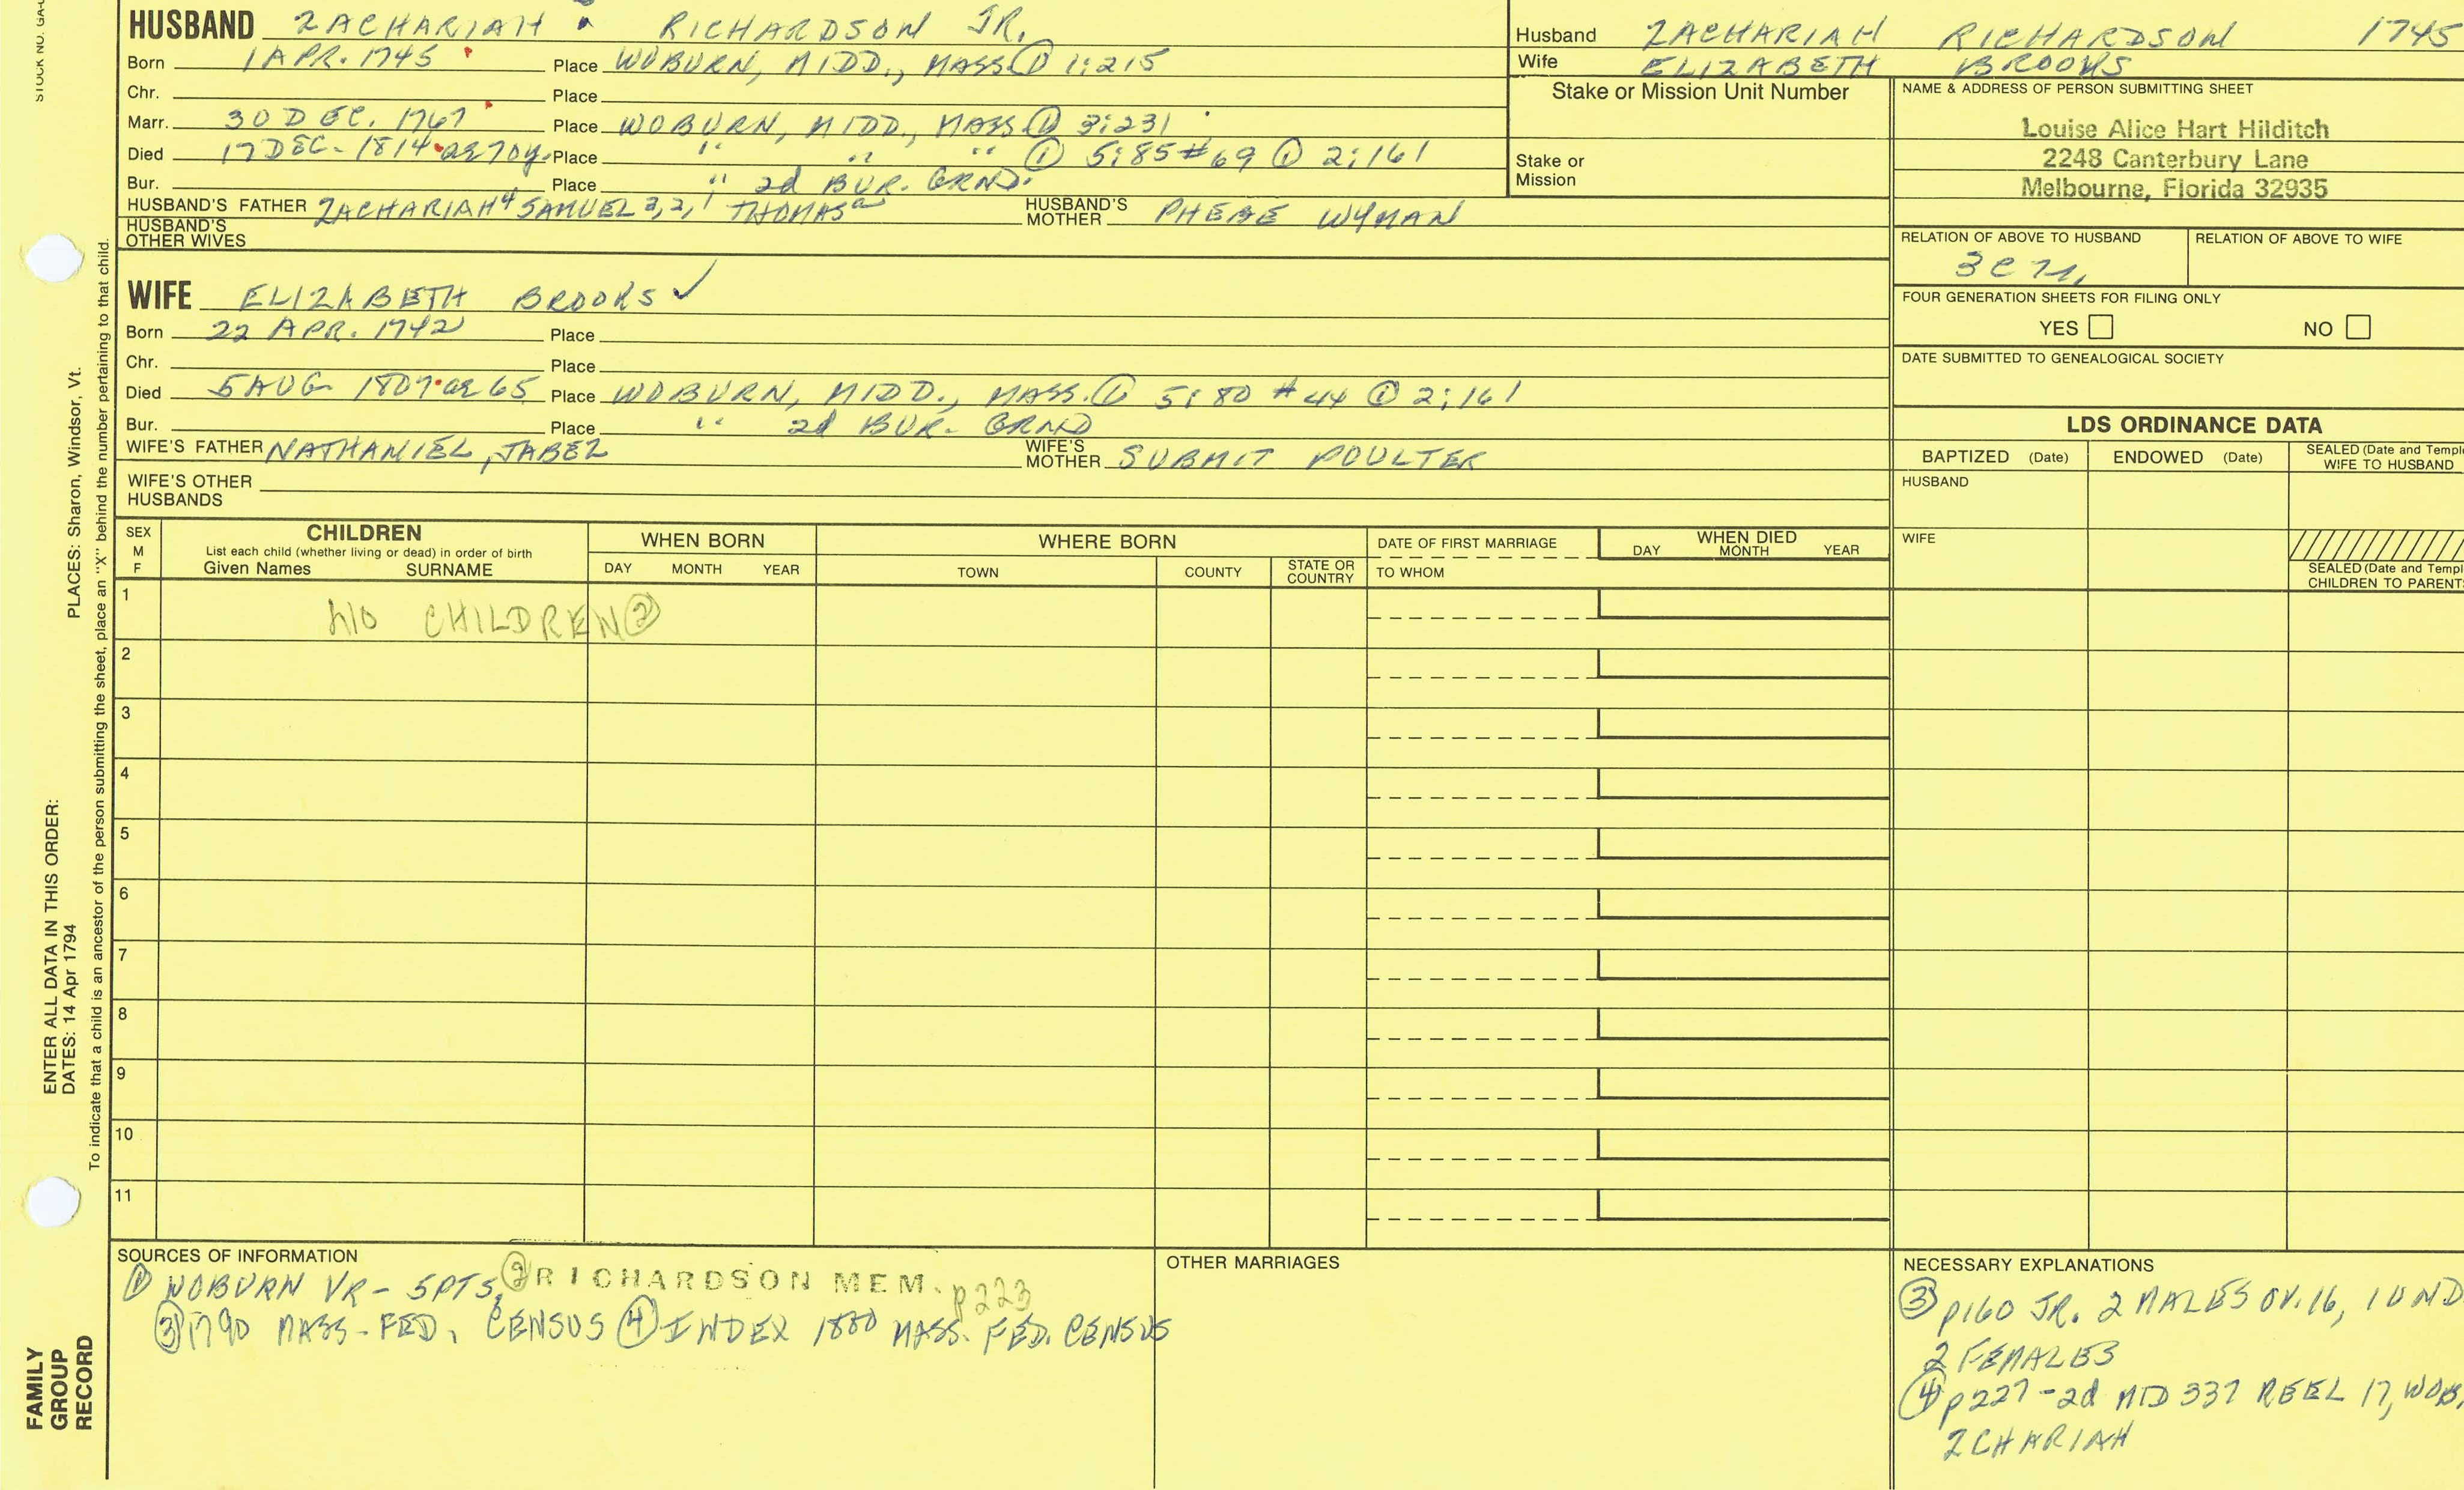 HUSBAND ZACHARIAH RICHARDSON JR.
Born 1 APR. 1745 Place WOBURN, MIDD., MASS. ① 1:215
Chr. Place
Marr. 30 DEC. 1767 Place WOBURN, MIDD., MASS. ① 3:231
Died 17 DEC. 1814 ae 70y. Place " " " ① 5:85 #69 ① 2:161
Bur. Place " 2d BUR. GRND.
HUSBAND'S FATHER ZACHARIAH⁴ SAMUEL 3,2,1 THOMAS HUSBAND'S MOTHER PHEBE WYMAN
HUSBAND'S OTHER WIVES
WIFE ELIZABETH BROOKS ✓
Born 22 APR. 1742 Place
Chr. Place
Died 5 AUG 1807 ae 65 Place WOBURN, MIDD., MASS. ① 5:80 #44 ① 2:161
Bur. Place " 2d BUR. GRND
WIFE'S FATHER NATHANIEL, JABEZ WIFE'S MOTHER SUBMIT POULTER
WIFE'S OTHER HUSBANDS
Husband ZACHARIAH RICHARDSON 1745
Wife ELIZABETH BROOKS
Stake or Mission Unit Number
Stake or Mission
NAME & ADDRESS OF PERSON SUBMITTING SHEET
Louise Alice Hart Hilditch
2248 Canterbury Lane
Melbourne, Florida 32935
RELATION OF ABOVE TO HUSBAND RELATION OF ABOVE TO WIFE
FOUR GENERATION SHEETS FOR FILING ONLY
YES NO
DATE SUBMITTED TO GENEALOGICAL SOCIETY
LDS ORDINANCE DATA
BAPTIZED (Date) ENDOWED (Date) SEALED (Date and Templ
WIFE TO HUSBAND
HUSBAND
WIFE
SEALED (Date and Templ
CHILDREN TO PARENT
SEX M F
CHILDREN
List each child (whether living or dead) in order of birth
Given Names SURNAME
WHEN BORN
DAY MONTH YEAR
WHERE BORN
TOWN COUNTY STATE OR COUNTRY
DATE OF FIRST MARRIAGE
TO WHOM
WHEN DIED
DAY MONTH YEAR
1 NO CHILDREN ②
2
3
4
5
6
7
8
9
10
11
SOURCES OF INFORMATION
① WOBURN VR - 5PTS, ② RICHARDSON MEM. p223
③ 1790 MASS-FED. CENSUS ④ INDEX 1800 MASS. FED. CENSUS
OTHER MARRIAGES
NECESSARY EXPLANATIONS
③ p160 JR. 2 MALES OV. 16, 1 UND
2 FEMALES
④ p227-2d MID 337 REEL 17, WOB.
ZCHARIAH
STOCK NO. GA-
PLACES: Sharon, Windsor, Vt.
ENTER ALL DATA IN THIS ORDER:
DATES: 14 Apr 1794
To indicate that a child is an ancestor of the person submitting the sheet, place an "X" behind the number pertaining to that child.
FAMILY
GROUP
RECORD